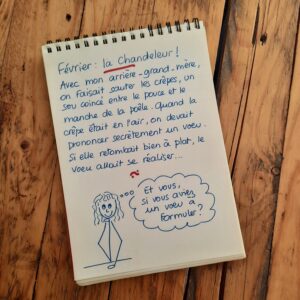 Février : la Chandeleur !
Avec mon arrière-grand-mère,
on faisait sauter les crêpes, un
sou coincé entre le pouce et le
manche de la poêle. Quand la
crêpe était en l'air, on devait
prononcer secrètement un voeu.
Si elle retombait bien à plat, le
voeu allait se réaliser...
?
Et vous,
si vous aviez
un voeu à
formuler ?